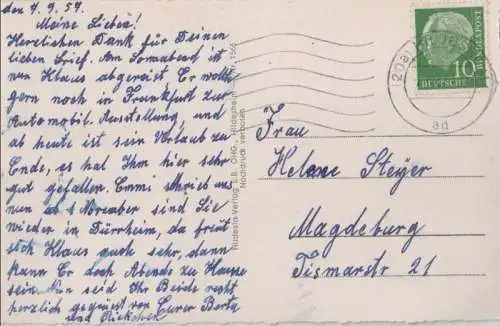 den 7.9.57.
Meine Lieben!
Herzlichen Dank für Deinen
lieben Brief. Am Sonnabend ist
nun Klaus abgereist Er wollte
gern noch in Frankfurt zur
Automobil. Ausstellung, und
ab heute ist sein Urlaub zu
Ende, es hat Ihm hier sehr
gut gefallen. Emmi schrieb uns
nun ab November sind Sie
wieder in Dürrheim, da freut
sich Klaus auch sehr, dann
kann Er doch Abends zu Hause
sein. Nun seid Ihr Beide recht
herzlich gegrüsst von Eurer Berta
und
Rudesta-Verlag R.B. OHG., Hildesheim 1566
Nachdruck verboten
DEUTSCHE BUNDESPOST
10
ad
Frau
Helene Steyer
Magdeburg
Tismarstr 21